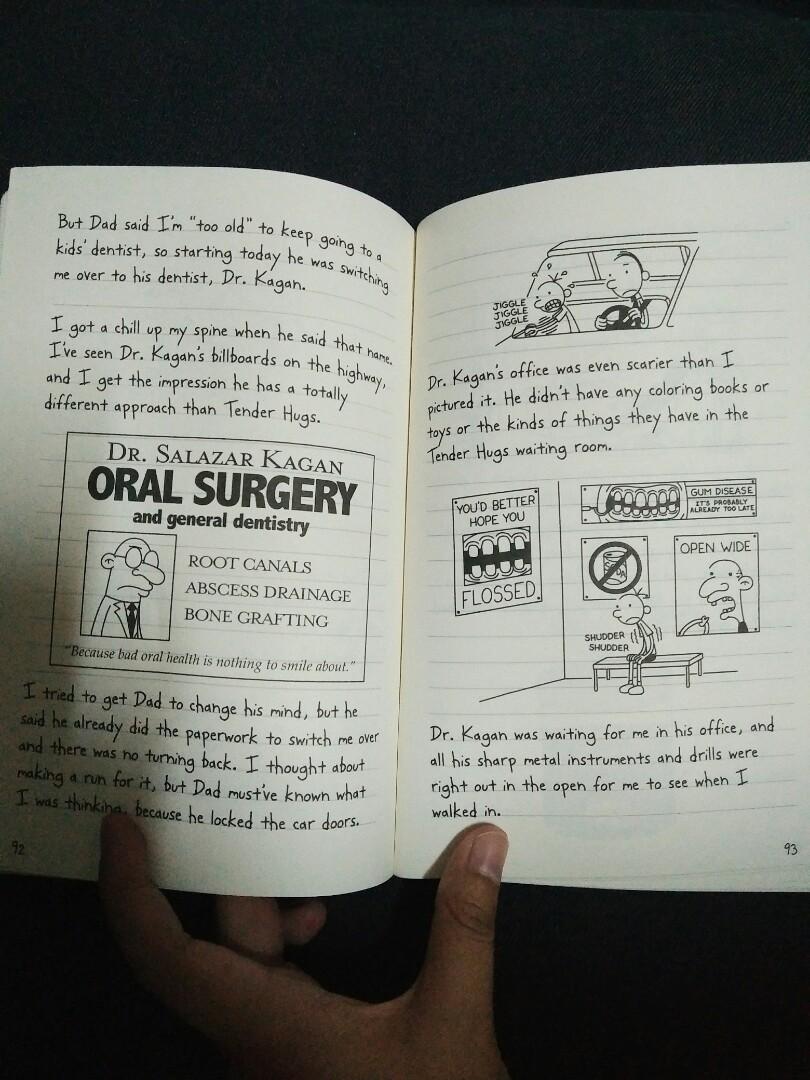 But Dad said I'm "too old" to keep going to a
kids' dentist, so starting today he was switching
me over to his dentist, Dr. Kagan.
I got a chill up my spine when he said that name.
I've seen Dr. Kagan's billboards on the highway,
and I get the impression he has a totally
different approach than Tender Hugs.
DR. SALAZAR KAGAN
ORAL SURGERY
and general dentistry
ROOT CANALS
ABSCESS DRAINAGE
BONE GRAFTING
"Because bad oral health is nothing to smile about."
I tried to get Dad to change his mind, but he
said he already did the paperwork to switch me over
and there was no turning back. I thought about
making a run for it, but Dad must've known what
I was thinking, because he locked the car doors.
92
JIGGLE
JIGGLE
JIGGLE
Dr. Kagan's office was even scarier than I
pictured it. He didn't have any coloring books or
toys or the kinds of things they have in the
Tender Hugs waiting room.
YOU'D BETTER
HOPE YOU
FLOSSED
GUM DISEASE
IT'S PROBABLY
ALREADY TOO LATE
SODA
OPEN WIDE
SHUDDER
SHUDDER
Dr. Kagan was waiting for me in his office, and
all his sharp metal instruments and drills were
right out in the open for me to see when I
walked in.
93